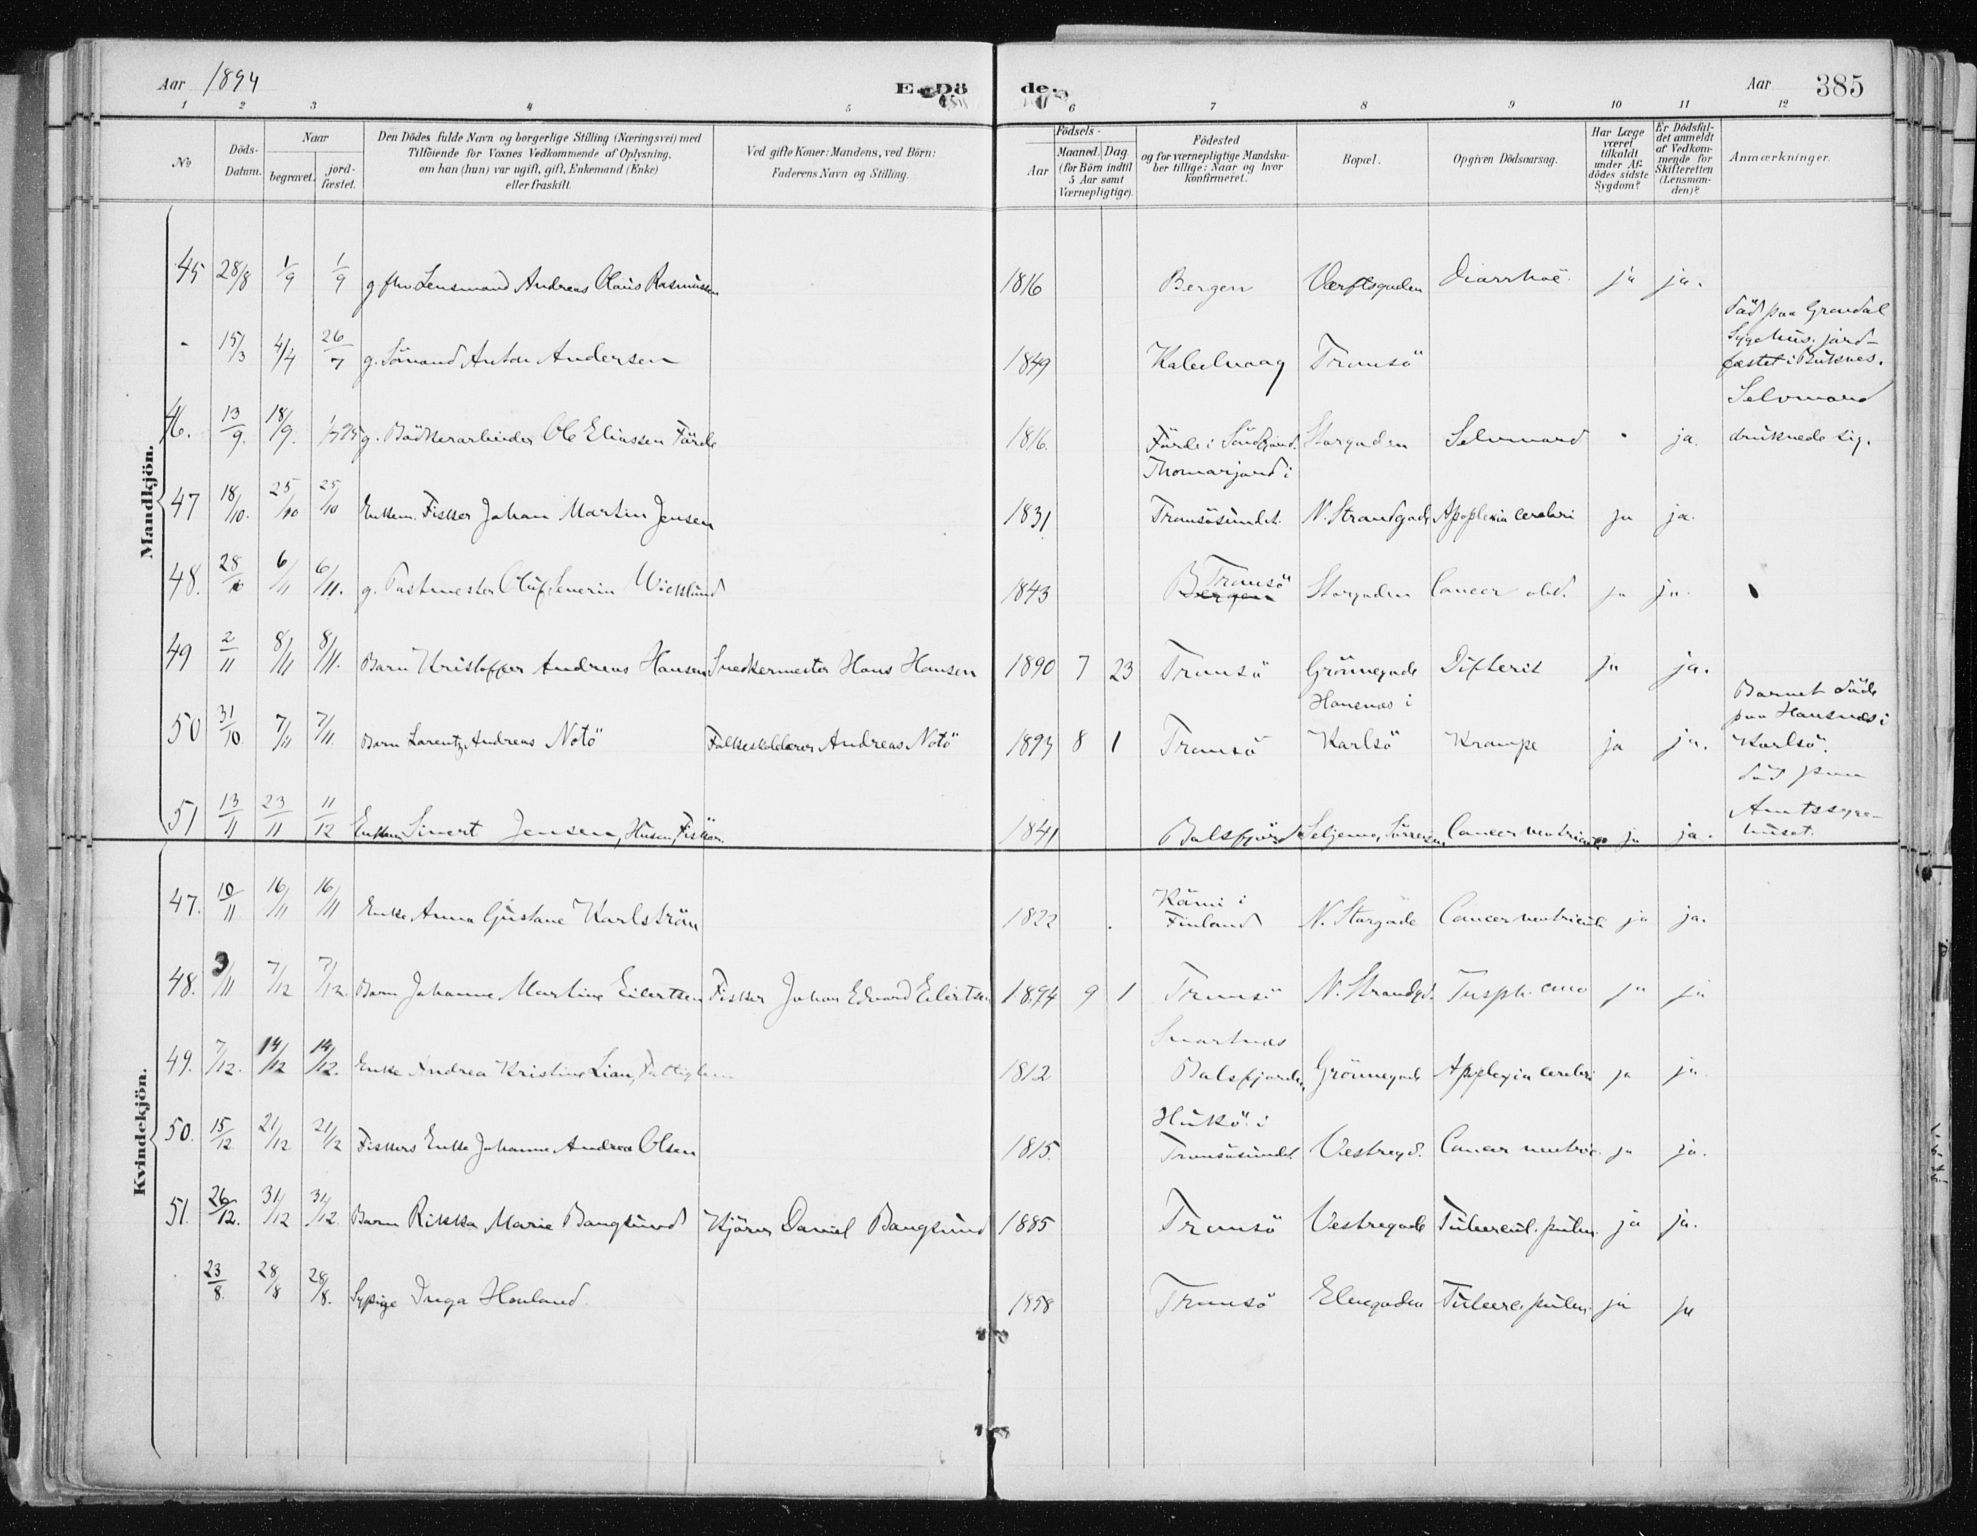 Aar 1894 E. Dö de. Aar 385
1 2 3 4 5 6 7 8 9 10 11 12
No
Döds-Datum.
Naar
begravet.
jord-fæstet.
Den Dödes fulde Navn og borgerlige Stilling (Næringsvei) med
Tilföiende for Voxnes Vedkommende af Oplysning,
om han (hun) var ugift, gift, Enkemand (Enke)
eller fraskilt.
Ved gifte Koner: Mandens, ved Börn:
Faderens Navn og Stilling.
Födsels-
Aar
Maaned. Dag
(for Börn indtil
5 Aar samt
Værnepligtige).
Födested
og for værnepligtige Mandska-
ber tillige: Naar og hvor
konfirmeret.
Bopæl.
Opgiven Dödsaarsag.
Har Læge
været
tilkaldt
under Af-
dödes sidste
Sygdom?
Er Dödsfal-
det anmeldt
af Vedkom-
mende for
Skifteretten
(Lensman-
den)?
Anmærkninger.
Mandkjön.
45 28/8 1/9 1/9 g. fhv Lensmand Andreas Olaus Rasmussen 1816 Bergen Værftsgaden Diarrhoë ja ja.
- 15/3 4/4 26/7 g. Sömand Anton Andersen 1849 Kabelvaag Tromsö död paa Gravdal
Sygehus, jord-
fæstet i Buknes.
46. 13/9. 18/9. g. Bödkerarbeider Ole Eliassen Förde 1816. Förde i Storgaden Selvmord - ja. Selvmord
druknede sig.
47 18/10. 25/10 25/10 Enkem. Fisker Johan Martin Jensen 1831 i
Tromsösundet. N. Strandgade Apoplexia cerebri ja ja.
48. 28/10 6/11 6/11. g. Postmester Oluf Severin Wicklund 1843 Tromsö
Bergen Storgaden Cancer ja ja.
49 2/11 8/11 8/11. Barn Kristoffer Andreas Hansen Snedkermester Hans Hansen 1890 7 23 Tromsö Grönnegade Difterit ja ja.
50 31/10 7/11 7/11. Barn Lorentz Andreas Notö Andreas Notö 1893 8 1 Tromsö Hansnes i
Karlsö Krampe ja ja. Barnet döde
paa Hansnes i
Karlsö.
51 13/11 23/11 11/12 Enkem. Sivert Jensen, Fisker. 1841 Balsfjord Cancer ventriculi ja ja. död paa
Amtssyge-
huset.
Kvindekjön.
47. 10/11 16/11 16/11 Enke Anna Gustava Karlström 1822 Kämi i
Finland N. Storgade Cancer ventriculi ja ja.
48. 3/11 7/12 7/12. Barn Johanne Martine Eilertsen Fisker Johan Edvard Eilertsen 1894 9 1 Tromsö N. Strandgd. ja ja
49. 7/12. 14/12 14/12. Enke Andrea Kristine Lian, Fattiglem 1812 Svartnæs
Balsfjorden Grönnegade Apoplexia cerebri ja ja.
50. 15/12 21/12 21/12 Fiskers Enke Johanna Andrea Olsen 1815. i
Tromsösundet. Vestregd. Cancer ventric. ja ja.
51. 26/12. 31/12 31/12. Barn Rikka Marie Bangsund Kjörer Daniel Bangsund 1885 Tromsö Vestregade Tubercul. pulm. ja ja.
23/8. 28/8 28/8. Sypige Inga Hauland. 1858 Tromsö Elvegaden Tuberc. pulm. ja ja